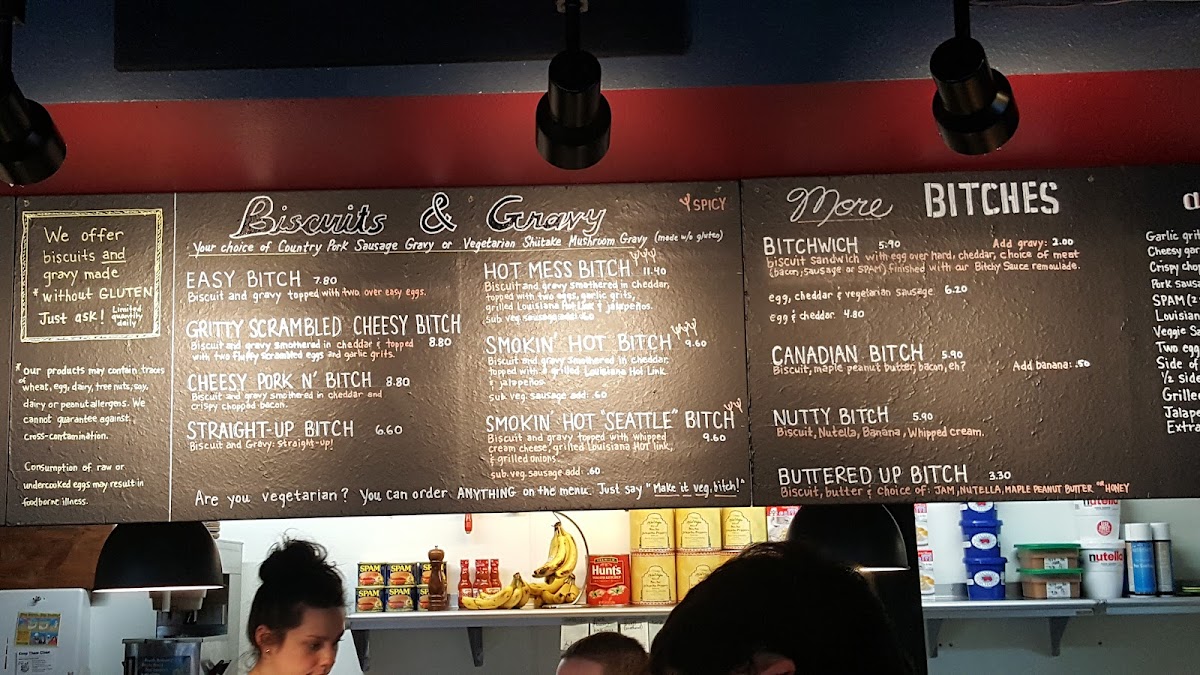 We offer
biscuits and
gravy made
* without GLUTEN
Just ask! Limited quantity daily
* our products may contain traces
of wheat, egg, dairy, tree nuts, soy,
dairy or peanut allergens. We
cannot guarantee against
cross-contamination.
Consumption of raw or
undercooked eggs may result in
foodborne illness.
Biscuits & Gravy
SPICY
Your choice of Country Pork Sausage Gravy or Vegetarian Shiitake Mushroom Gravy (made w/o gluten)
EASY BITCH 7.80
Biscuit and gravy topped with two over easy eggs.
GRITTY SCRAMBLED CHEESY BITCH
Biscuit and gravy smothered in cheddar & topped 8.80
with two fluffy scrambled eggs and garlic grits.
CHEESY PORK N' BITCH 8.80
Biscuit and gravy smothered in cheddar and
crispy chopped bacon.
STRAIGHT-UP BITCH 6.60
Biscuit and Gravy: straight-up!
HOT MESS BITCH 11.40
Biscuit and gravy smothered in cheddar,
topped with two eggs, garlic grits,
grilled Louisiana Hot Link & jalapeños.
sub veg. sausage add .60
SMOKIN' HOT BITCH 9.60
Biscuit and gravy smothered in cheddar,
topped with a grilled Louisiana Hot Link
& jalapeños.
sub veg. sausage add .60
SMOKIN' HOT "SEATTLE" BITCH
Biscuit and gravy topped with whipped 9.60
cream cheese, grilled Louisiana HOT link,
& grilled onions.
sub.veg. sausage add .60
Are you vegetarian? You can order ANYTHING on the menu. Just say "Make it veg, bitch!"
More BITCHES
BITCHWICH 5.90 Add gravy: 2.00
biscuit sandwich with egg over hard, cheddar, choice of meat
(bacon, sausage or SPAM) finished with our Bitchy Sauce remoulade.
egg, cheddar & vegetarian sausage 6.20
egg & cheddar 4.80
CANADIAN BITCH 5.90
Biscuit, maple peanut butter, bacon, eh? Add banana: .50
NUTTY BITCH 5.90
Biscuit, Nutella, Banana, Whipped cream.
BUTTERED UP BITCH 3.30
Biscuit, butter & choice of: JAM, NUTELLA, MAPLE PEANUT BUTTER OR HONEY
Garlic grit
Cheesy gar
Crispy chop
Pork sausa
SPAM (2
Louisian
Veggie Sa
Two egg
Side of
1/2 side
Grilled
Jalape
Extra
SPAM SPAM
Hunt's
nutella